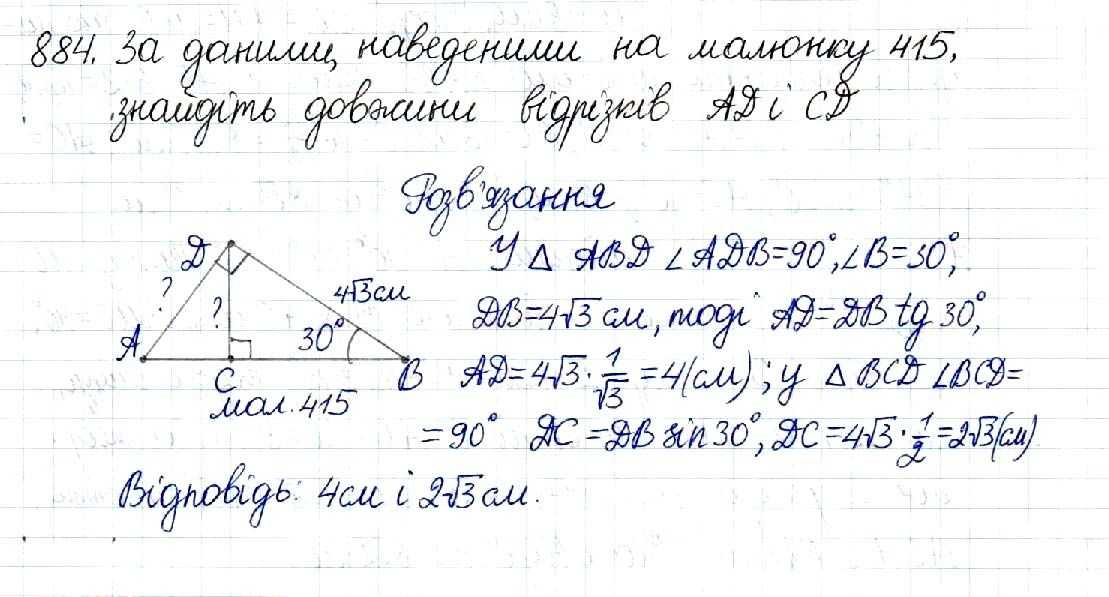 884. За даними, наведеними на малюнку 415,
знайдіть довжини відрізків AD і CD
Розв'язання
У △ ABD ∠ADB=90°, ∠B=30°,
DB=4√3 см, тоді AD=DB tg 30°,
AD=4√3·1/√3=4(см); у △ BCD ∠BCD=
=90° DC=DB sin 30°, DC=4√3·1/2=2√3(см)
D
?
?
4√3см
30°
A
C
B
мал. 415
Відповідь: 4см і 2√3 см.